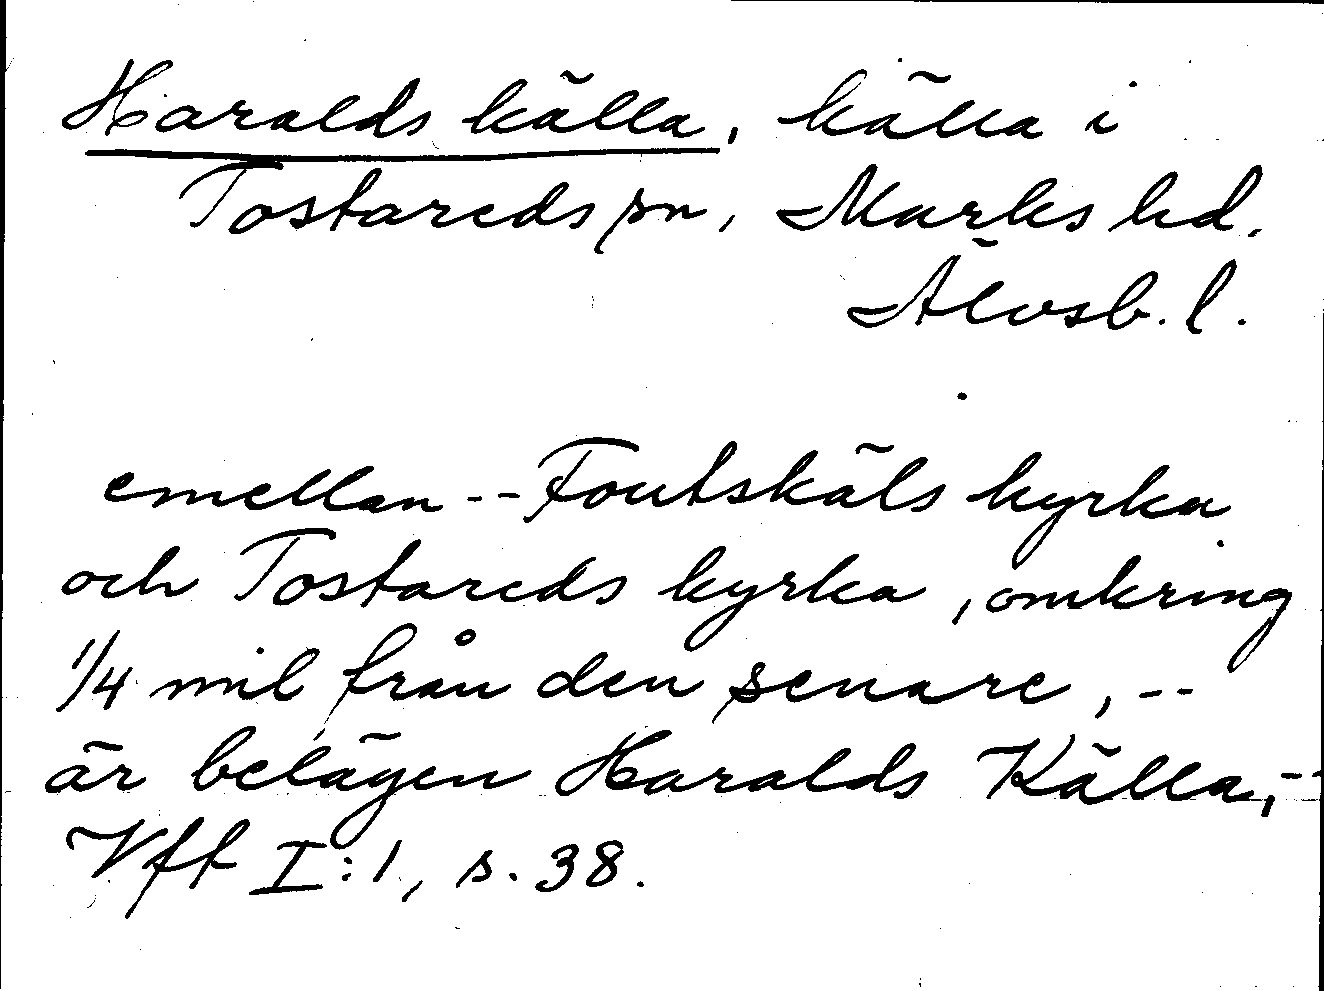 Haralds källa, källa i
Tostareds sn, Marks hd.
Älvsb. l.
emellan -- Foutskäls kyrka
och Tostareds kyrka, omkring
1/4 mil från den senare, --
är belägen Haralds Källa, --
Vft I:1, s. 38.